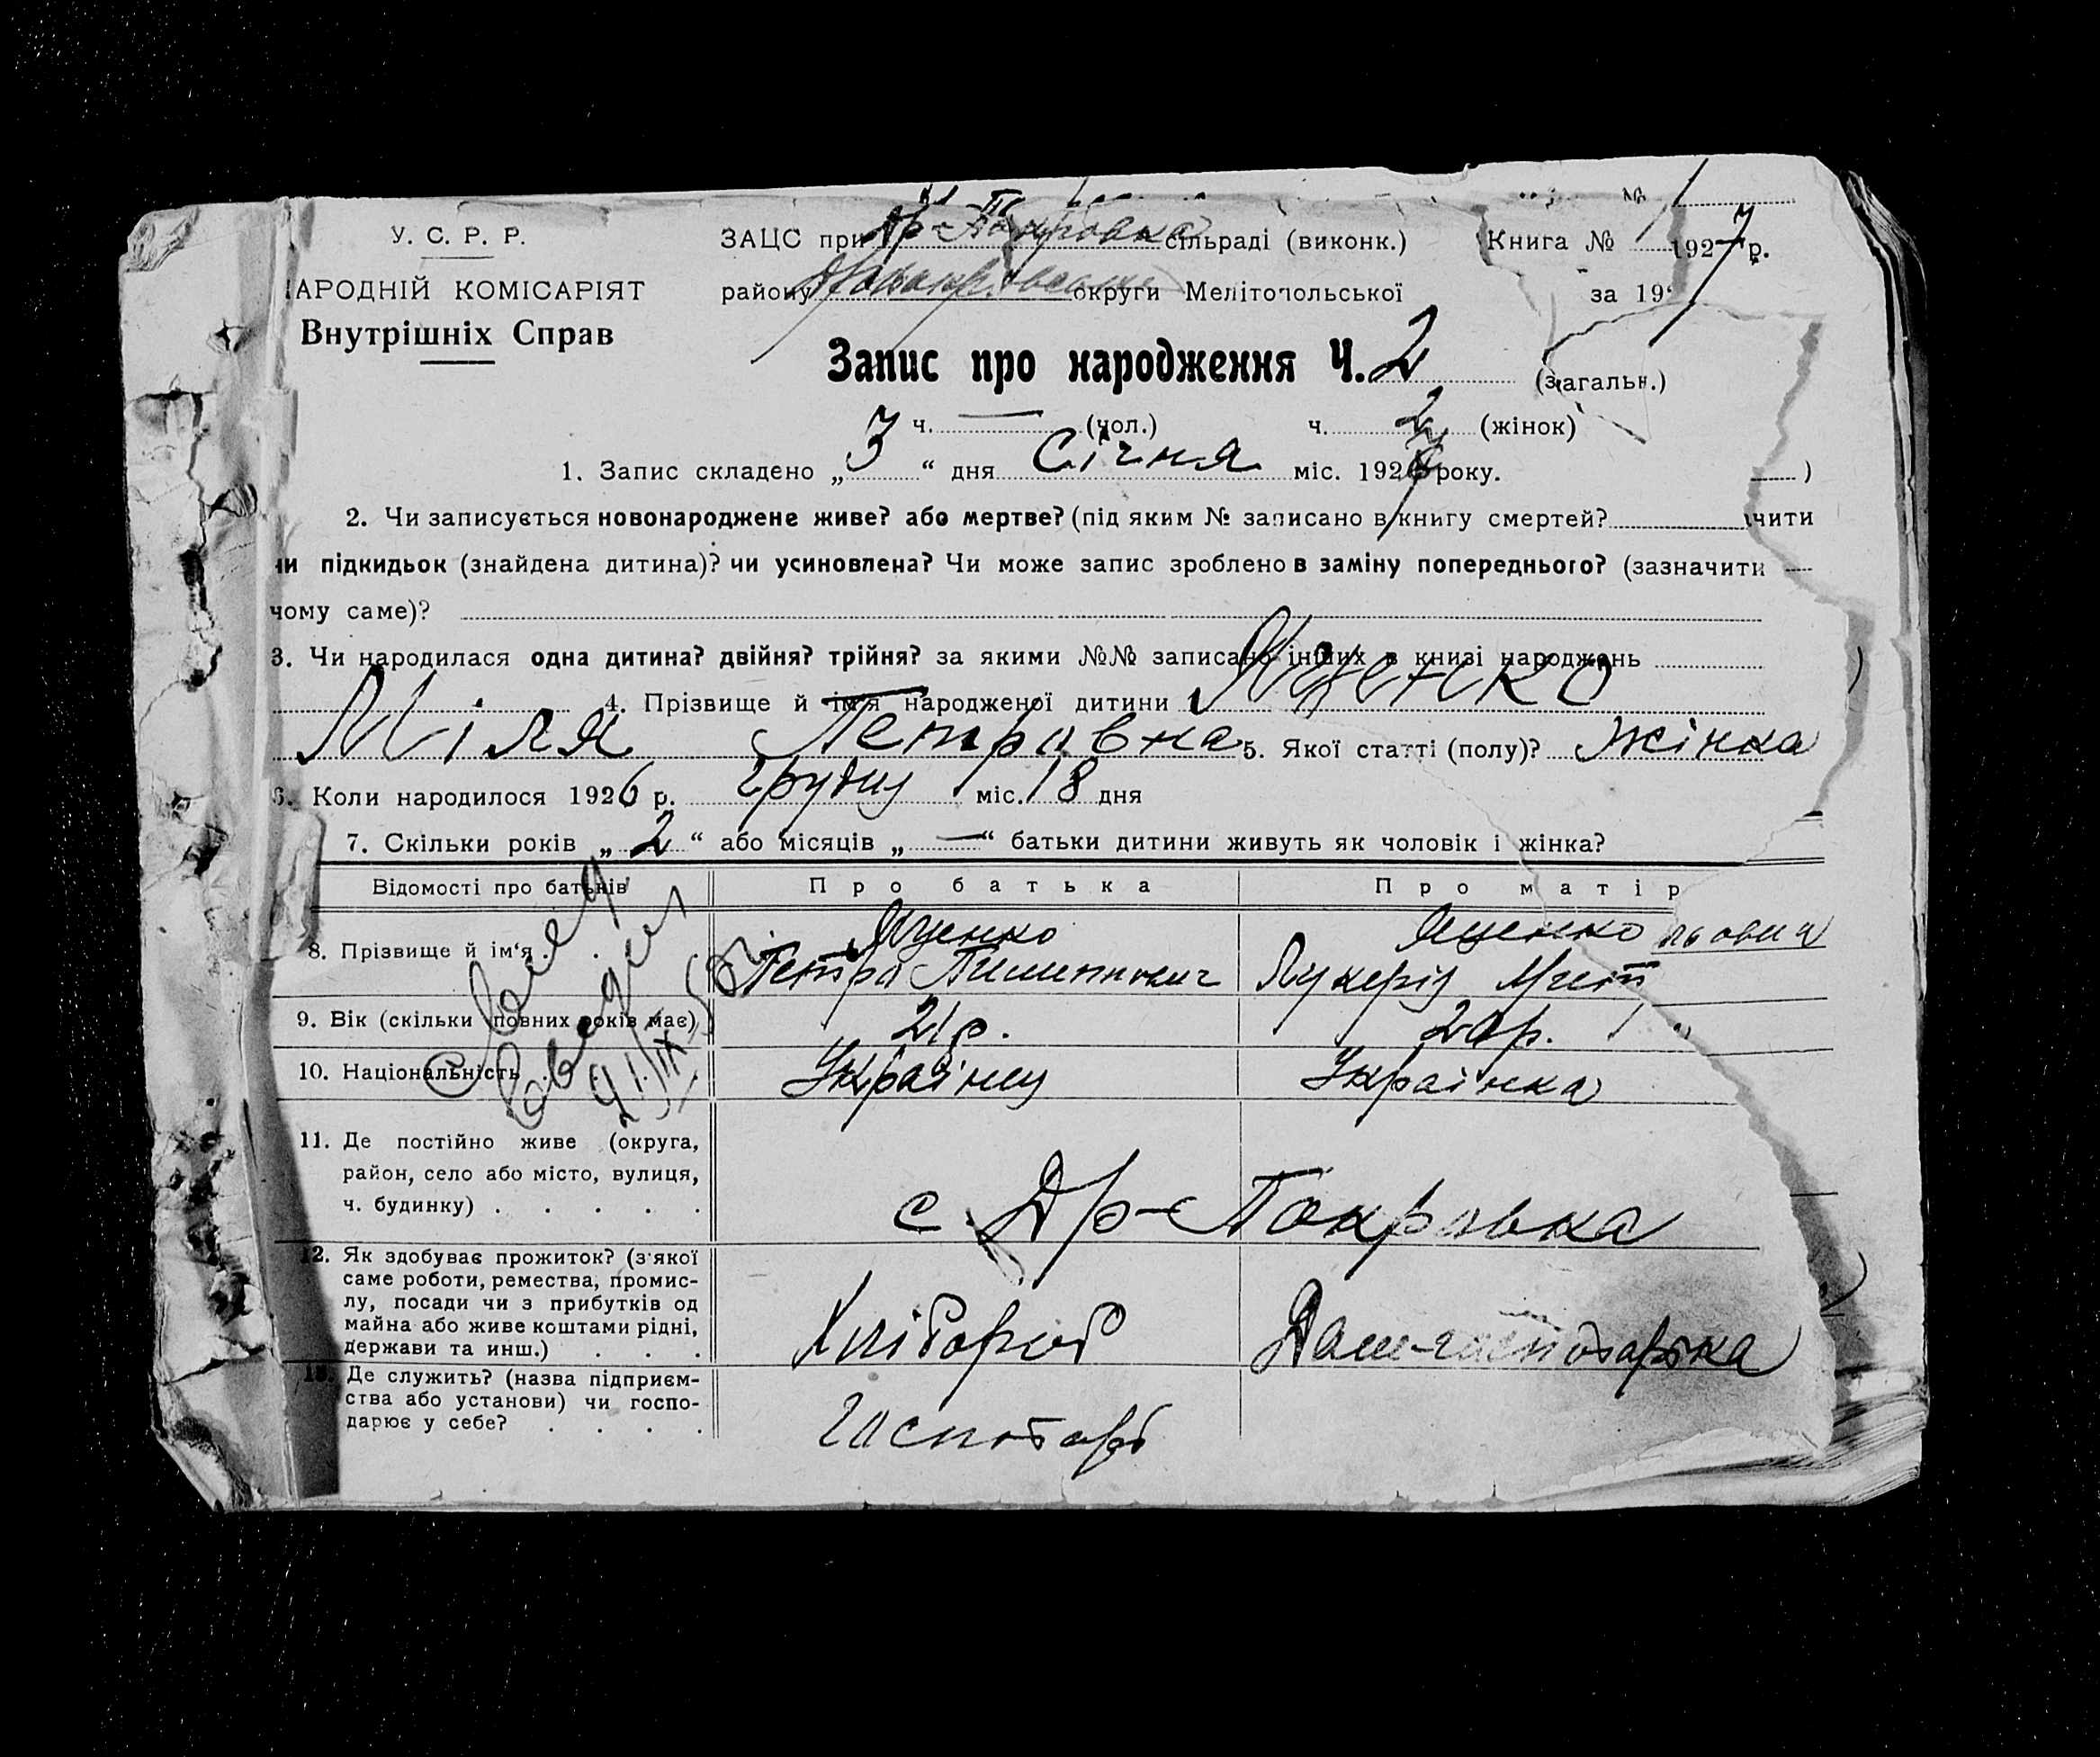 № 1
У. С. Р. Р.
ЗАЦС при Др-Покровка сільраді (виконк.)
Книга № 1927 р.
АРОДНІЙ КОМІСАРІЯТ
району округи Мелітопольської
за 19
Внутрішніх Справ
Запис про народження Ч. 2 (загальн.)
ч. — (чол.) ч. 2 (жінок)
1. Запис складено „ 3 “ дня Січня міс. 1927 року. )
2. Чи записується новонароджене живе? або мертве? (під яким № записано в книгу смертей? чити
чи підкидьок (знайдена дитина)? чи усиновлена? Чи може запис зроблено в заміну попереднього? (зазначити
чому саме)?
3. Чи народилася одна дитина? двійня? трійня? за якими №№ записано інших в книзі народжень
4. Прізвище й ім'я народженої дитини Яценко
Міля Петровна 5. Якої статті (полу)? Жінка
6. Коли народилося 1926 р. Грудня міс. 18 дня
7. Скільки років „ 2 “ або місяців „ — “ батьки дитини живуть як чоловік і жінка?
Відомості про батьків Про батька Про матір
8. Прізвище й ім‘я . . Яценко Яценко
Петро Пименнович Лукерія
9. Вік (скільки повних років має) 21 р. 20 р.
10. Національність Українец Українка
11. Де постійно живе (округа,
район, село або місто, вулиця,
ч. будинку) . . . . . с. Др-Покровка
12. Як здобуває прожиток? (з'якої
саме роботи, ремества, промис-
лу, посади чи з прибутків од
майна або живе коштами рідні,
держави та инш.) . . . Хлібороб Дом-господарка
13. Де служить? (назва підприєм-
ства або установи) чи госпо-
дарює у себе? . . . . господарь